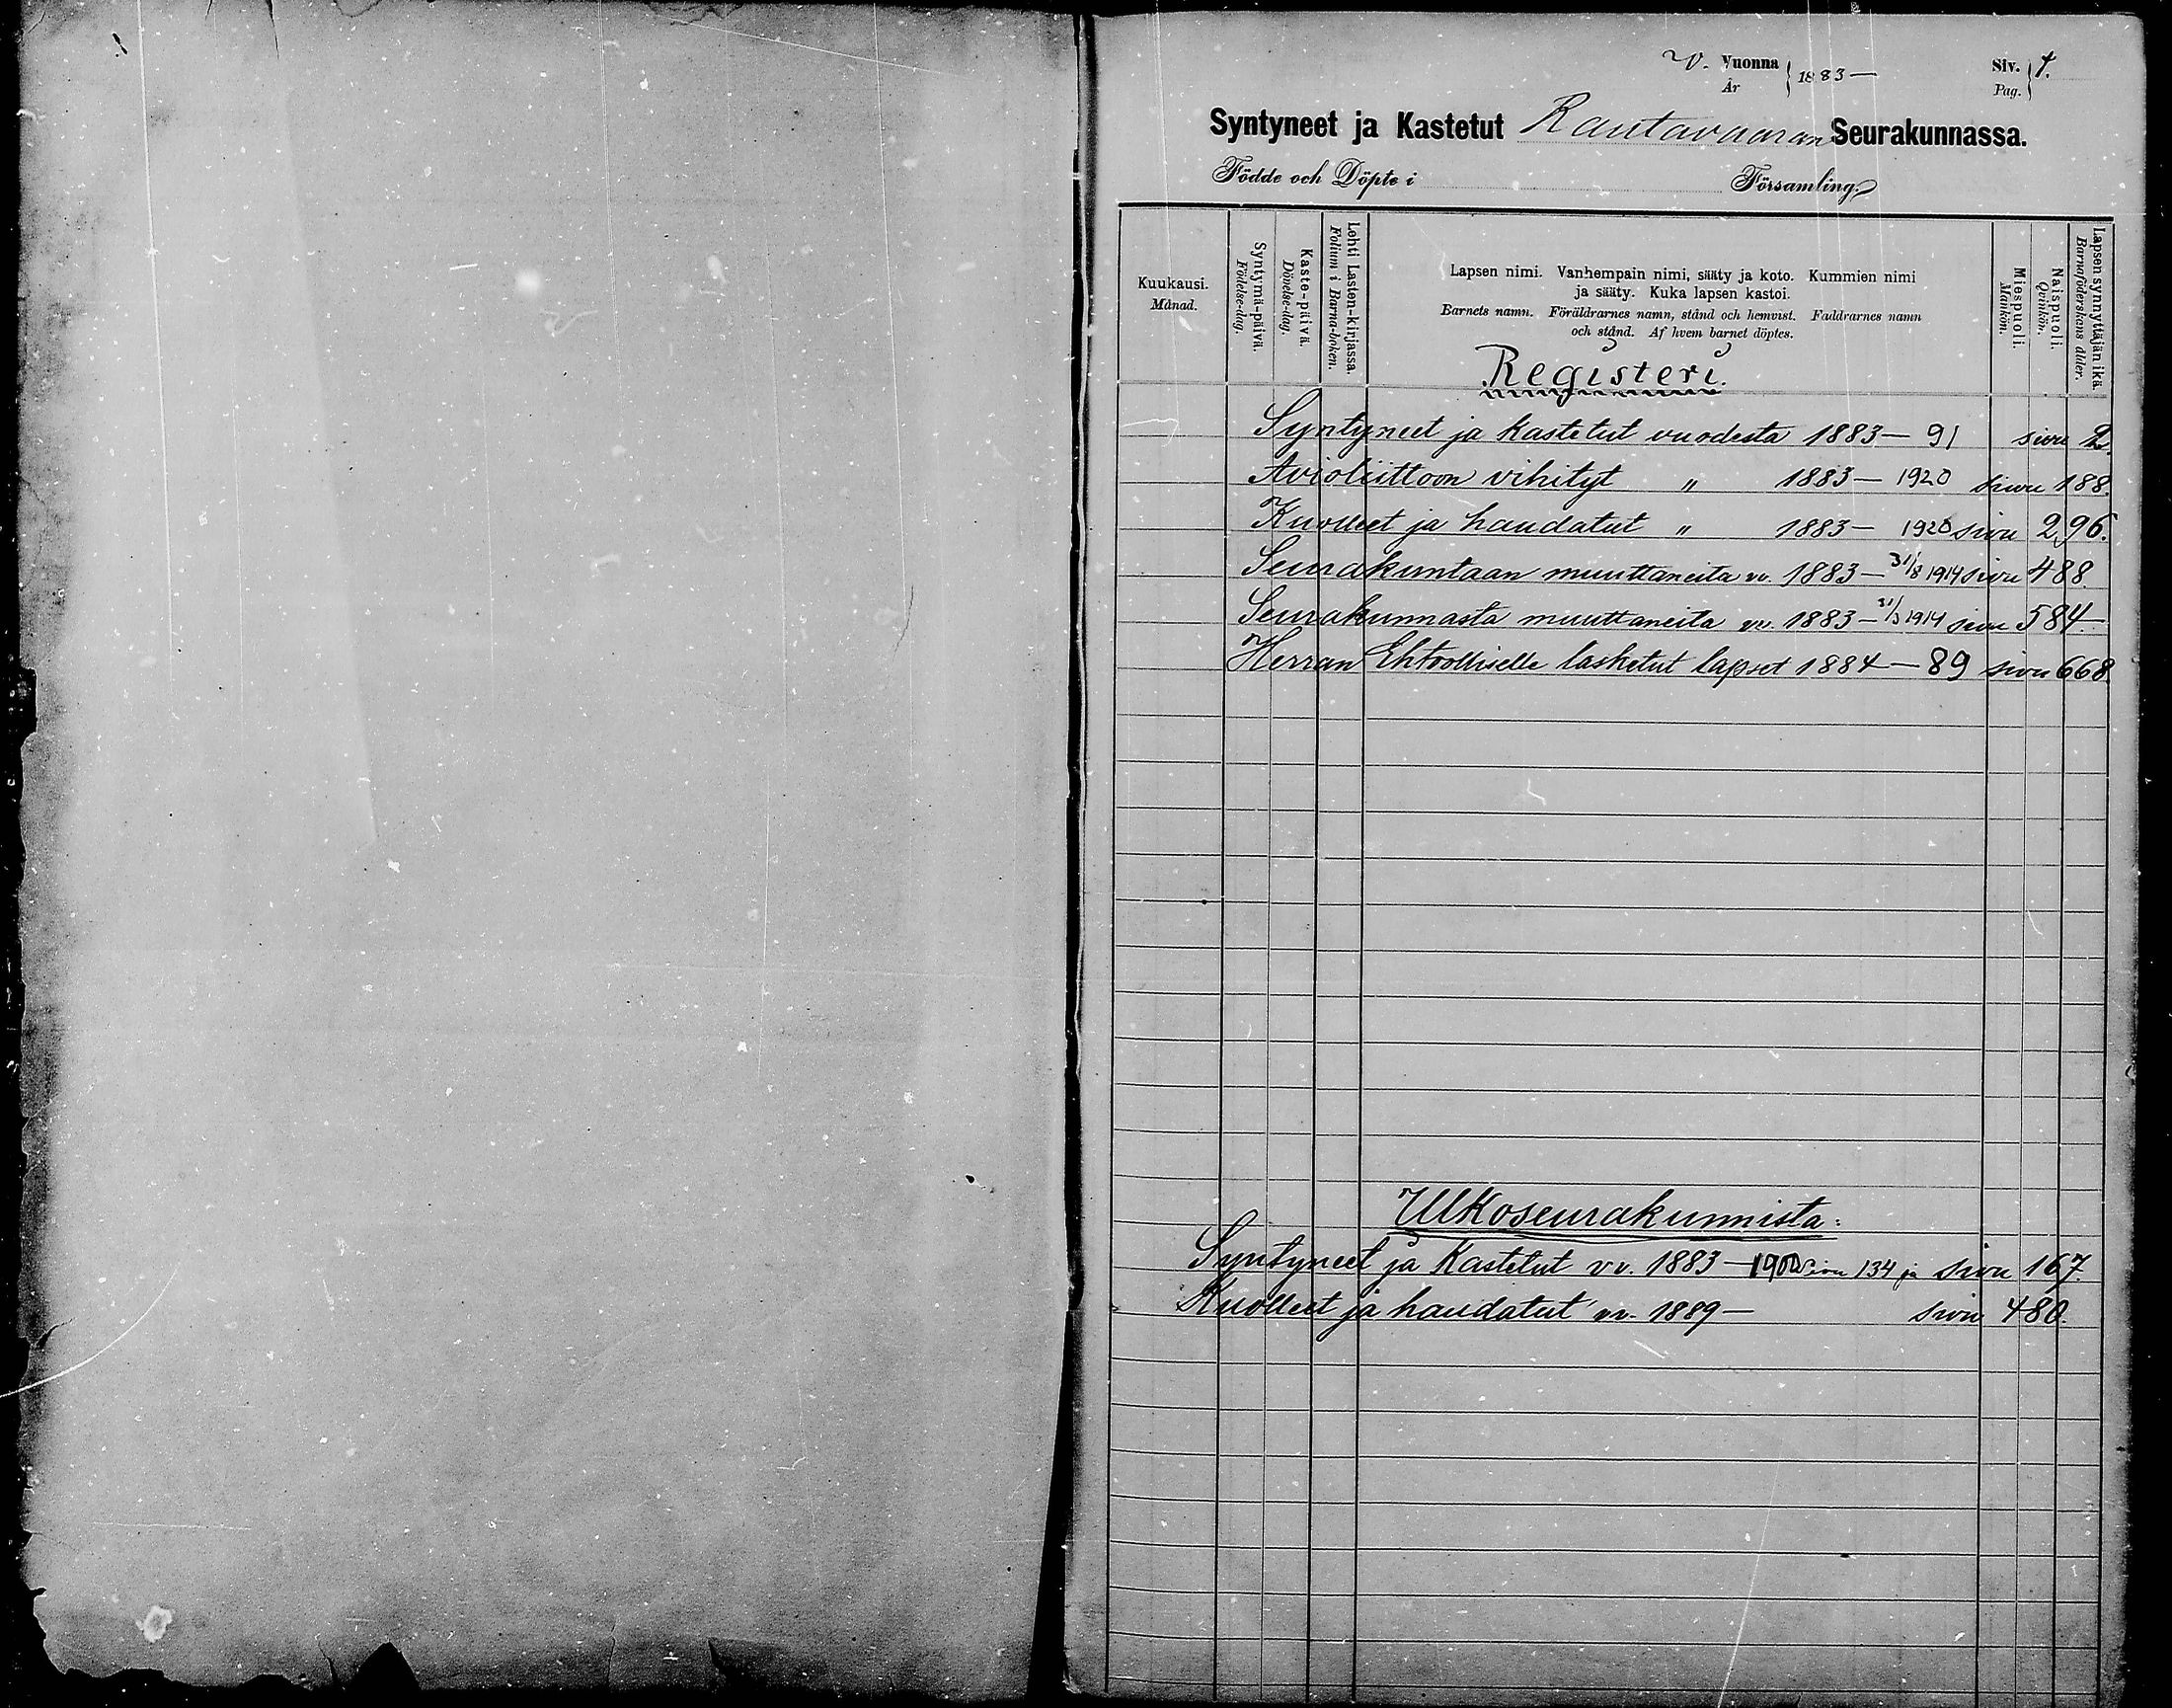 v. Vuonna 1883— Siv. 1.
År Pag.
Syntyneet ja Kastetut Rautavaaran Seurakunnassa.
Födde och Döpte i Församling.
Kuukausi.
Månad.
Syntymä-päivä.
Födelse-dag.
Kaste-päivä.
Döpelse-dag.
Lehti Lasten-kirjassa.
Folium i Barna-boken.
Lapsen nimi. Vanhempain nimi, sääty ja koto. Kummien nimi
ja sääty. Kuka lapsen kastoi.
Barnets namn. Föräldrarnes namn, stånd och hemvist. Faddrarnes namn
och stånd. Af hvem barnet döptes.
Miespuoli.
Mankön.
Naispuoli.
Qvinkön.
Lapsen synnyttäjän ikä.
Barnaföderskans ålder.
Registeri.
Syntyneet ja kastetut vuodesta 1883— 91 sivu 2.
Avioliittoon vihityt " 1883— 1920 sivu 188.
Kuolleet ja haudatut " 1883— 1920 sivu 296.
Seurakuntaan muuttaneita vv. 1883— 31/8 1914 sivu 488.
Seurakunnasta muuttaneita vv. 1883— 31/3 1914 sivu 584.
Herran Ehtoolliselle lasketut lapset 1884—89 sivu 668.
Ulkoseurakunnista:
Syntyneet ja Kastetut vv. 1883—1900 Sivu 134 ja sivu 167.
Kuolleet ja haudatut vv. 1889— sivu 480.